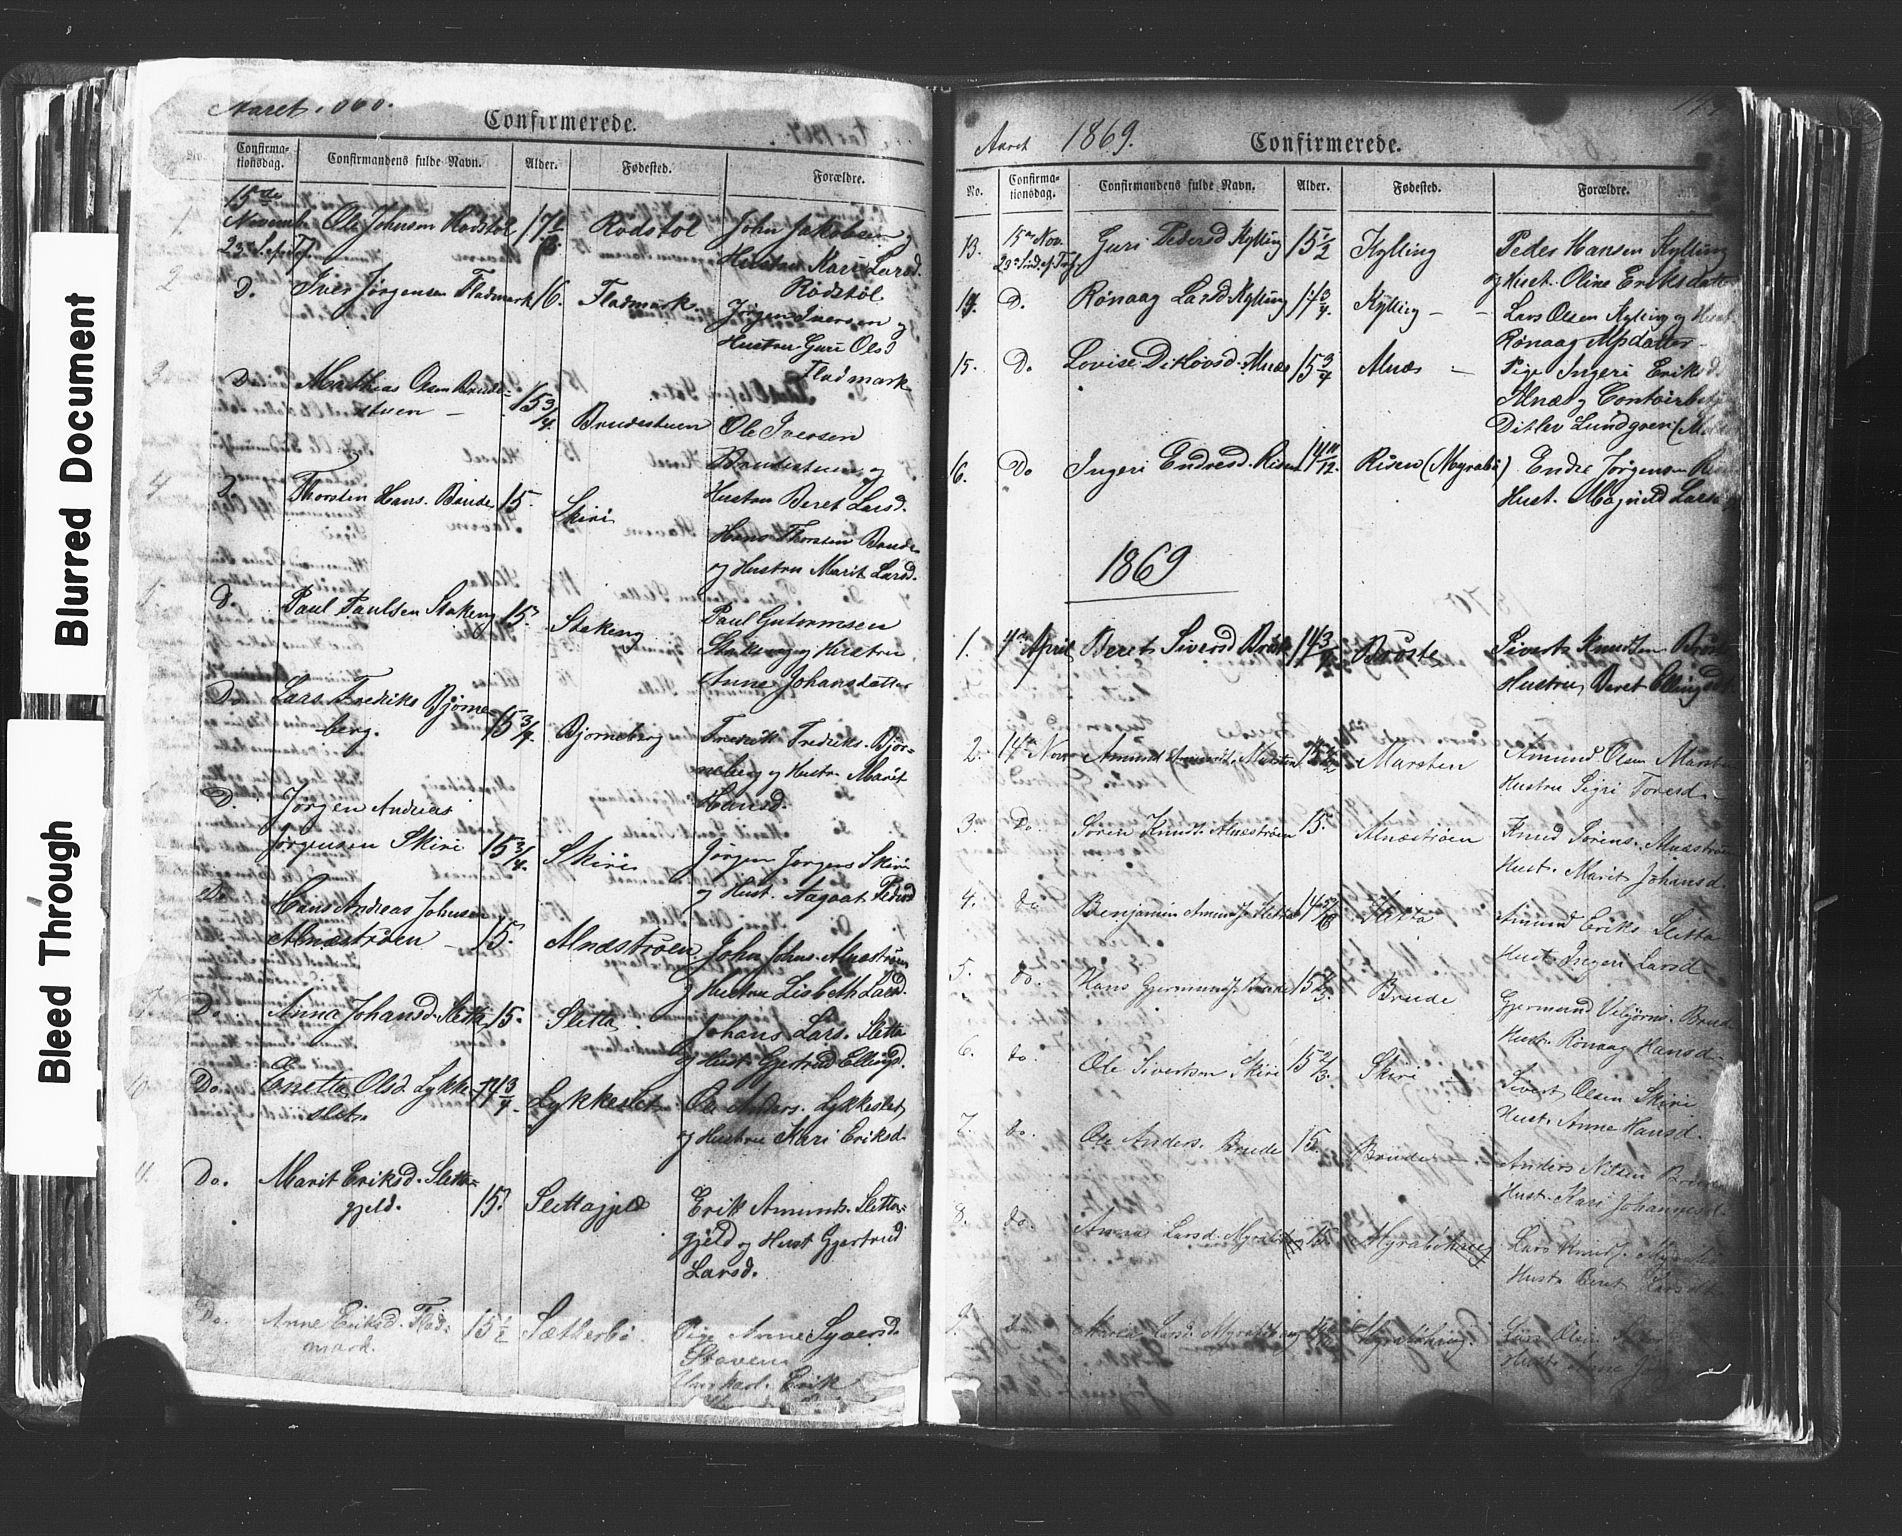 Blurred Document
Bleed Through
Aaret
Confirmerede.
Confirma-
tionsdag.
Confirmandens fulde Navn.
Alder.
Fødested.
Forældre.
15de
1. Novemb. Ole Johnsen Rødstøl 17 Rødstøl John Jakobsen
Hustru Kari Larsd.
Rødstøl
2 D. Iver Jørgensen Fladmark 16. Fladmark. Jørgen Iversen og
Hustru Guri Olsd
Fladmark
3. D. Matthias Olsen Brude- 15 3/4. Brudestuen Ole Iversen
stuen
Brudestuen og
Hustru Beret Larsd.
4 D. Thorsten Hans. Brude 15. Skiri Hans Thorsten Brude
og Hustru Marit Larsd.
D. Paul Paulsen Stokeng 15. Stokeng Paul Guttormsen
Stokeng og Hustru
Anne Johansdatter
Do Lars Fredriks Bjørne- 15 3/4. Bjørneberg Fredrik Fredriks. Bjør-
berg.
neberg og Hustr. Marit
Hansd.
D. Jørgen Andreas
Jørgensen Skiri 15 3/4. Skiri Jørgen Jørgens Skiri
og Hust. Aagaat Pedersd
Do. Hans Andreas Johnsen
Alnæstrøen 15. Alnæstrøen John Johns. Alnæstrøen
og Hustru Lisbeth Larsd.
Do. Anna Johansd. Sletta 15. Sletta. Johans Lars. Sletta
og Hust. Gjertrud Ellingsd.
10 Do. Enetta Olsd Lykke- 14 3/4. Lykkeslet Ole Anders. Lykkeslet
slet.
og Hustru Kari Eriksd.
11. Do. Marit Eriksd. Sletta- 15. Slettagjeld Erik Amunds. Sletta-
gjeld.
gjeld og Hust Gjertrud
Larsd.
Do. Anne Eriksd. Flad- 15 1/2 Sætherbø. Pige Anne Syversd.
mark.
Staven
Ungkarl. Erik
Aaret 1869.
Confirmerede.
No.
Confirma-
tionsdag.
Confirmandens fulde Navn.
Alder.
Fødested.
Forældre.
13. 15de Nov. Guri Pedersd Kylling 15 1/2 Kylling Peder Hansen Kylling
23de Sønd. ef. Trf.
og Hust. Oline Eriksdatter
14. D. Rønaag Larsd Kylling 14 3/4. Kylling Lars Olsen Kylling og Hust.
Rønaag
15. Do Lovise Ditlovsd. Alnæs 15 3/4 Alnæs Pige Ingeri Eriksd.
Alnæs og
Ditlev Lundgren
16. Do Ingeri Endresd. Risen 14 10/12. Risen (Myrabø) Endre Jørgensen
Hust. Magnild Larsd
1869
1. 4de April Beret Siversd Brøste 14 3/4 Brøste Sivert Knudsen Brøste
Hustru Beret Ellingsdt.
2. 14de Nov Amund Amunds. Marsten 15 Marsten Amund Olsen Marsten
Hustru Sigri Toresd.
3. Do. Søren Knuds. Alnæstrøen 15. Alnæstrøen Knud Sørens. Alnæstrøen
Hust. Marit Johansd.
4. do Benjamin Amunds. Sletta 14 Sletta Amund Eriks. Sletta
Hust. Ingeri Larsd
5. do. Hans Gjermunds. Brude 15 Brude Gjermund Vebjørns. Brude
Hust. Rønaag Hansd.
6. do. Ole Sivertsen Skiri 15 2/3. Skiri Sivert Olsen Skiri
Hust. Anne Hansd.
7. do. Ole Anders. Brude 15. Brude Anders Nilsen
Hust. Kari Johannesd.
8. do. Anne Larsd. 15 Lars Knuds.
Hust. Beret Larsdt.
9. do. Larsd. Lars Olsen
Hust. Anne